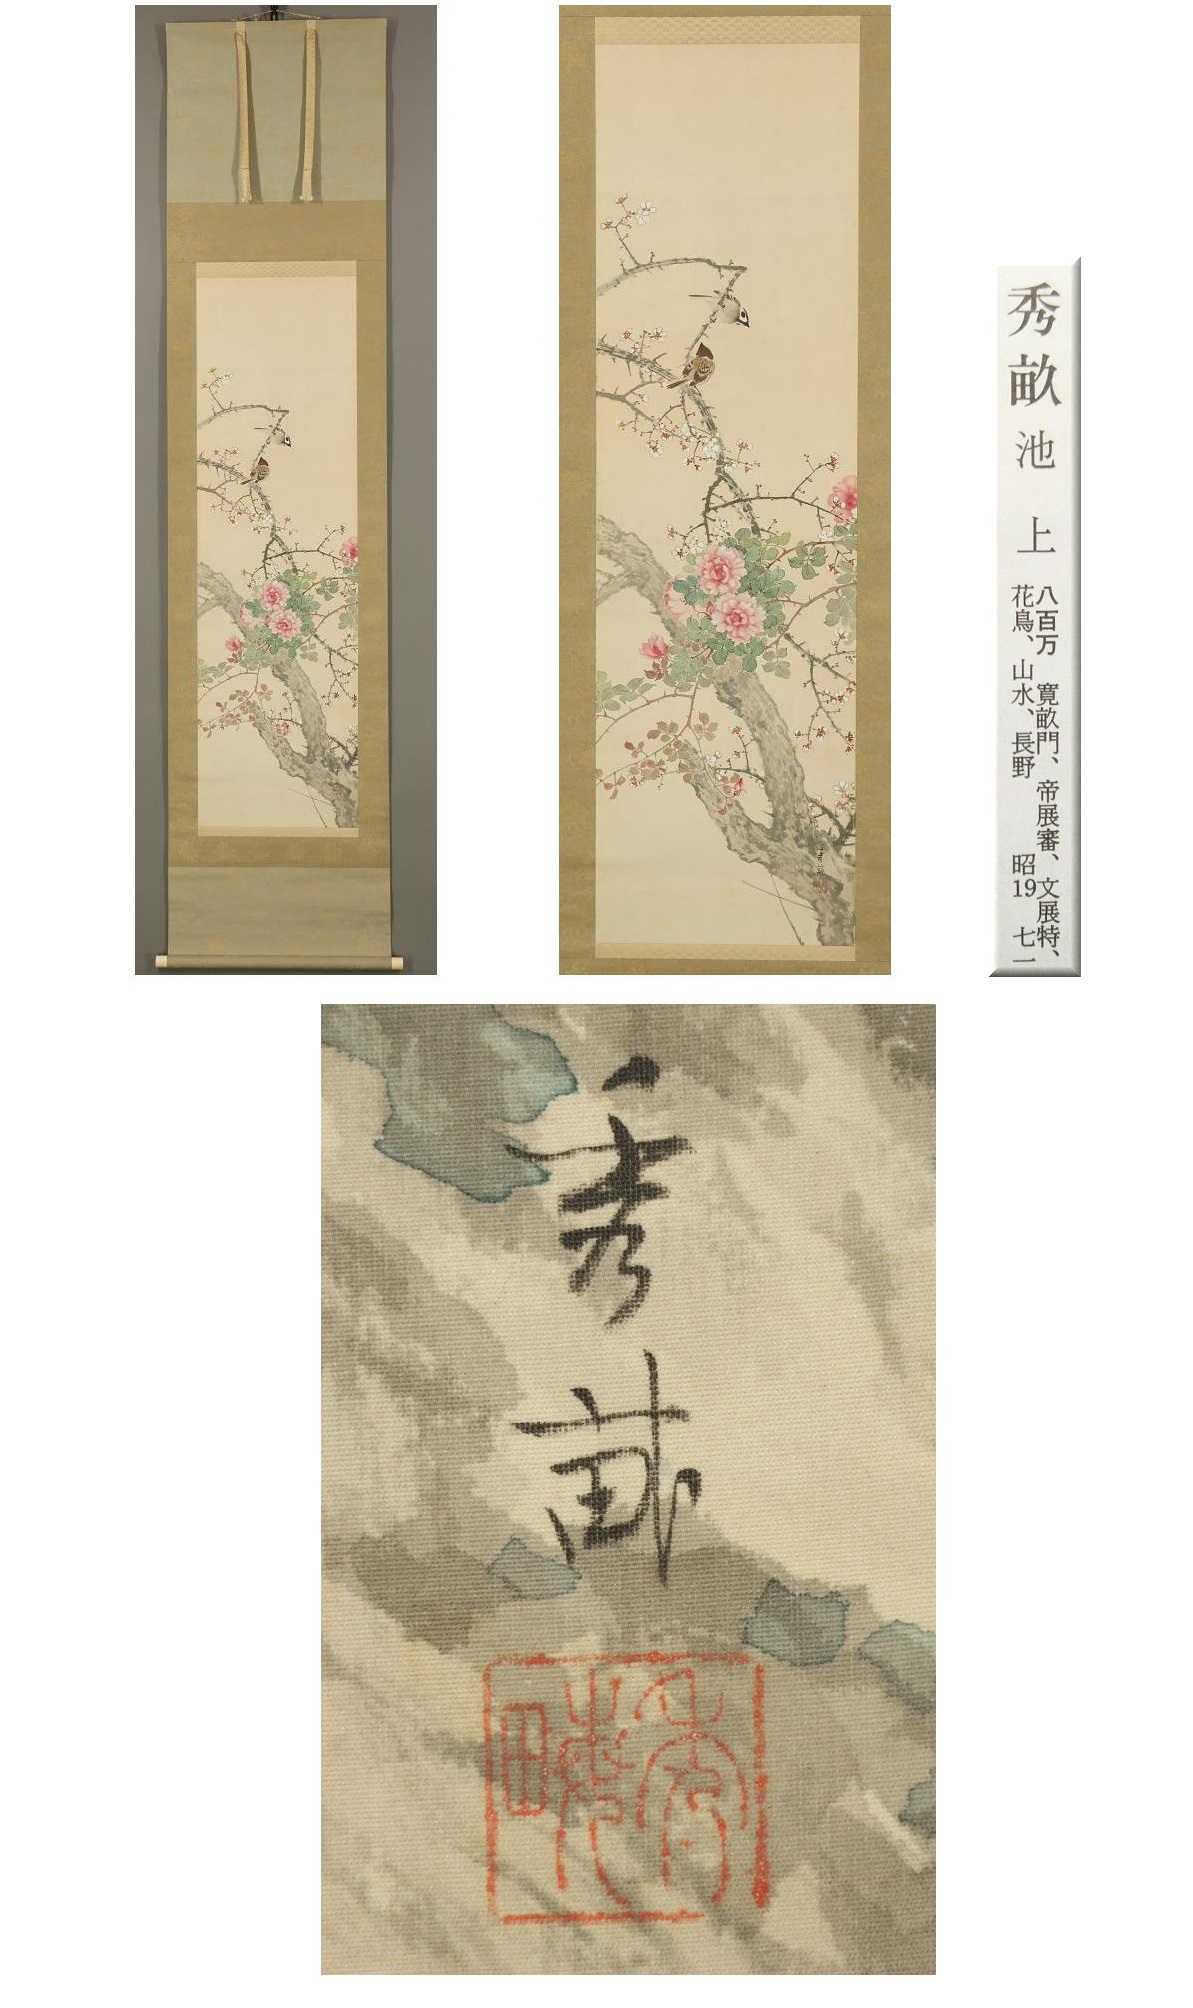 秀畝 池上
八百万 寛畝門、帝展審、文展特、
花鳥、山水、長野 昭19 七一
秀畝